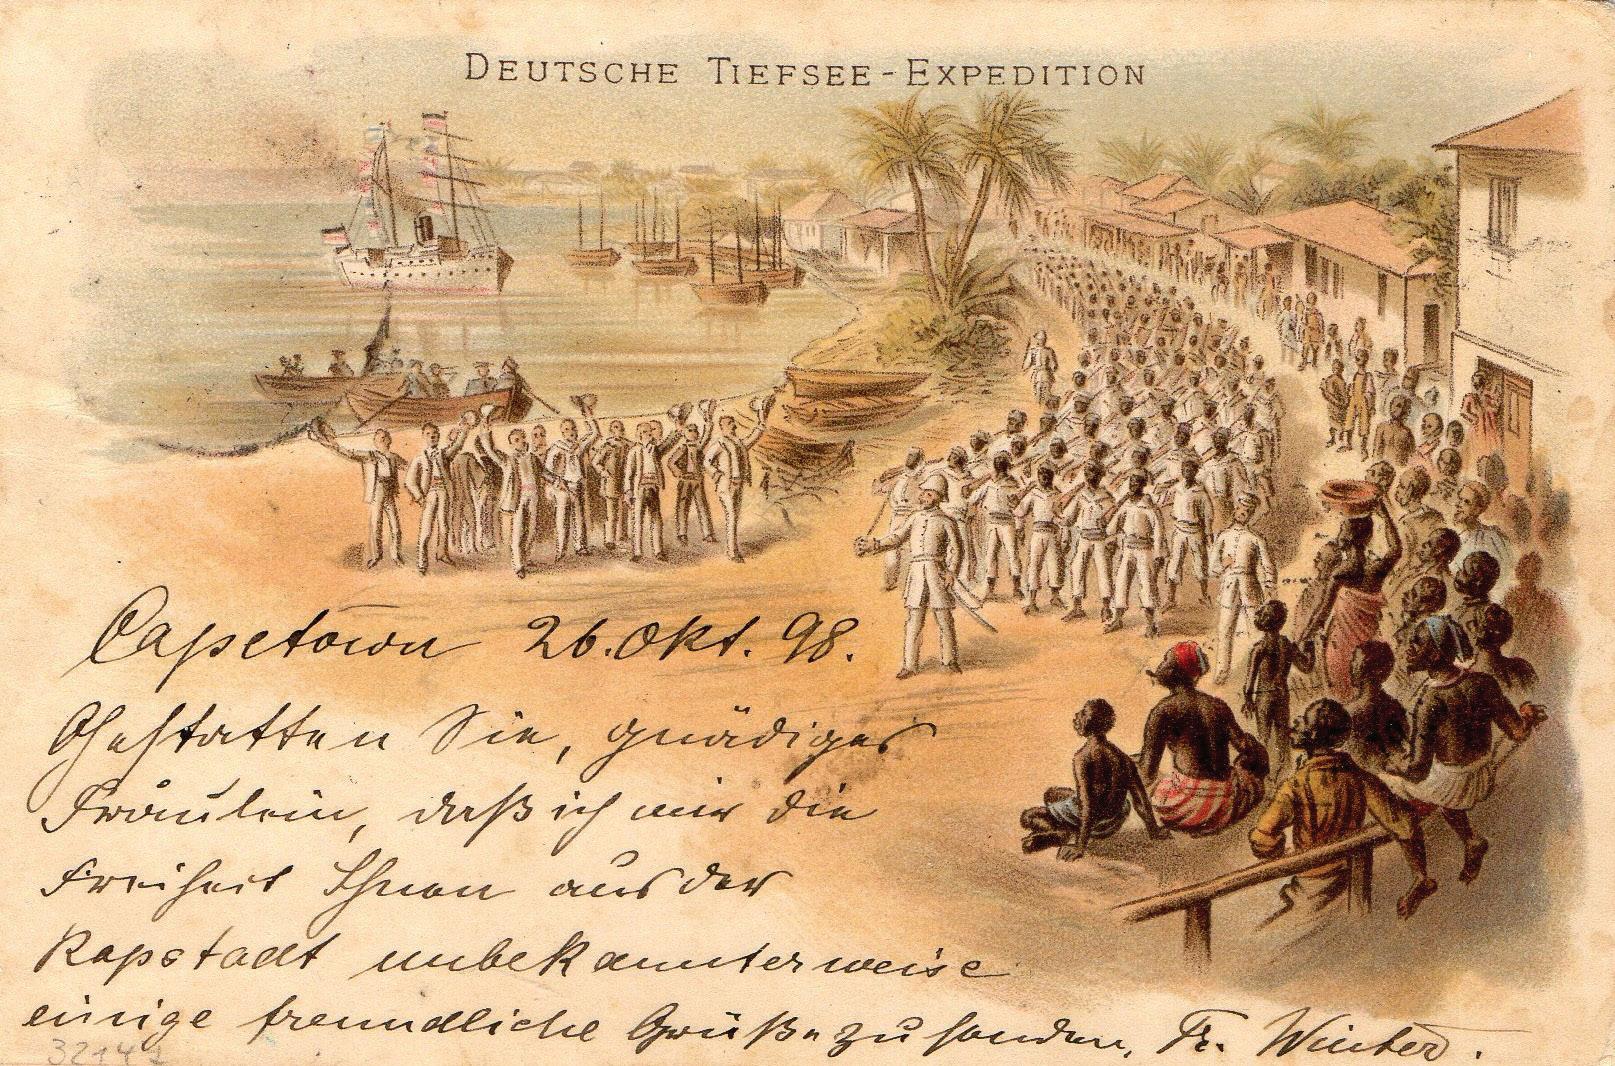 DEUTSCHE TIEFSEE-EXPEDITION
Capetown 26. Okt. 98.
Gestatten Sie, gnädiges
Fräulein, daß ich mir die
Freiheit Ihnen aus der
Kapstadt unbekannterweise
einige freundliche Grüße zu senden. Fr. Winter.
32141